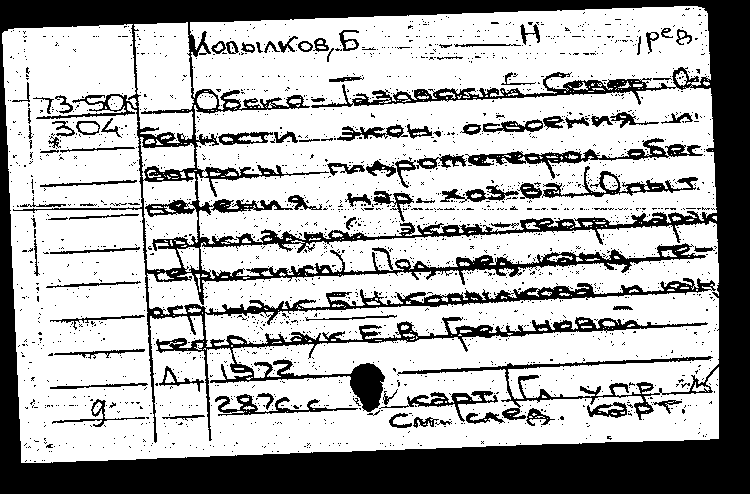 Копылков, Б Н , ред.
73-50К Обско-Тазовский Север. Осо
304 бенности экон. освоения и
вопросы гидрометеорол. обес-
печения нар. хоз-ва (Опыт
прикладной экон.-геогр. харак
теристики) Под ред. канд. ге-
огр. наук Б.Н. Копылкова и кан
геогр. наук Е.В. Грешновой.
Л., 1972
287с. с карт. (Гл. упр.
9 См. след. карт.